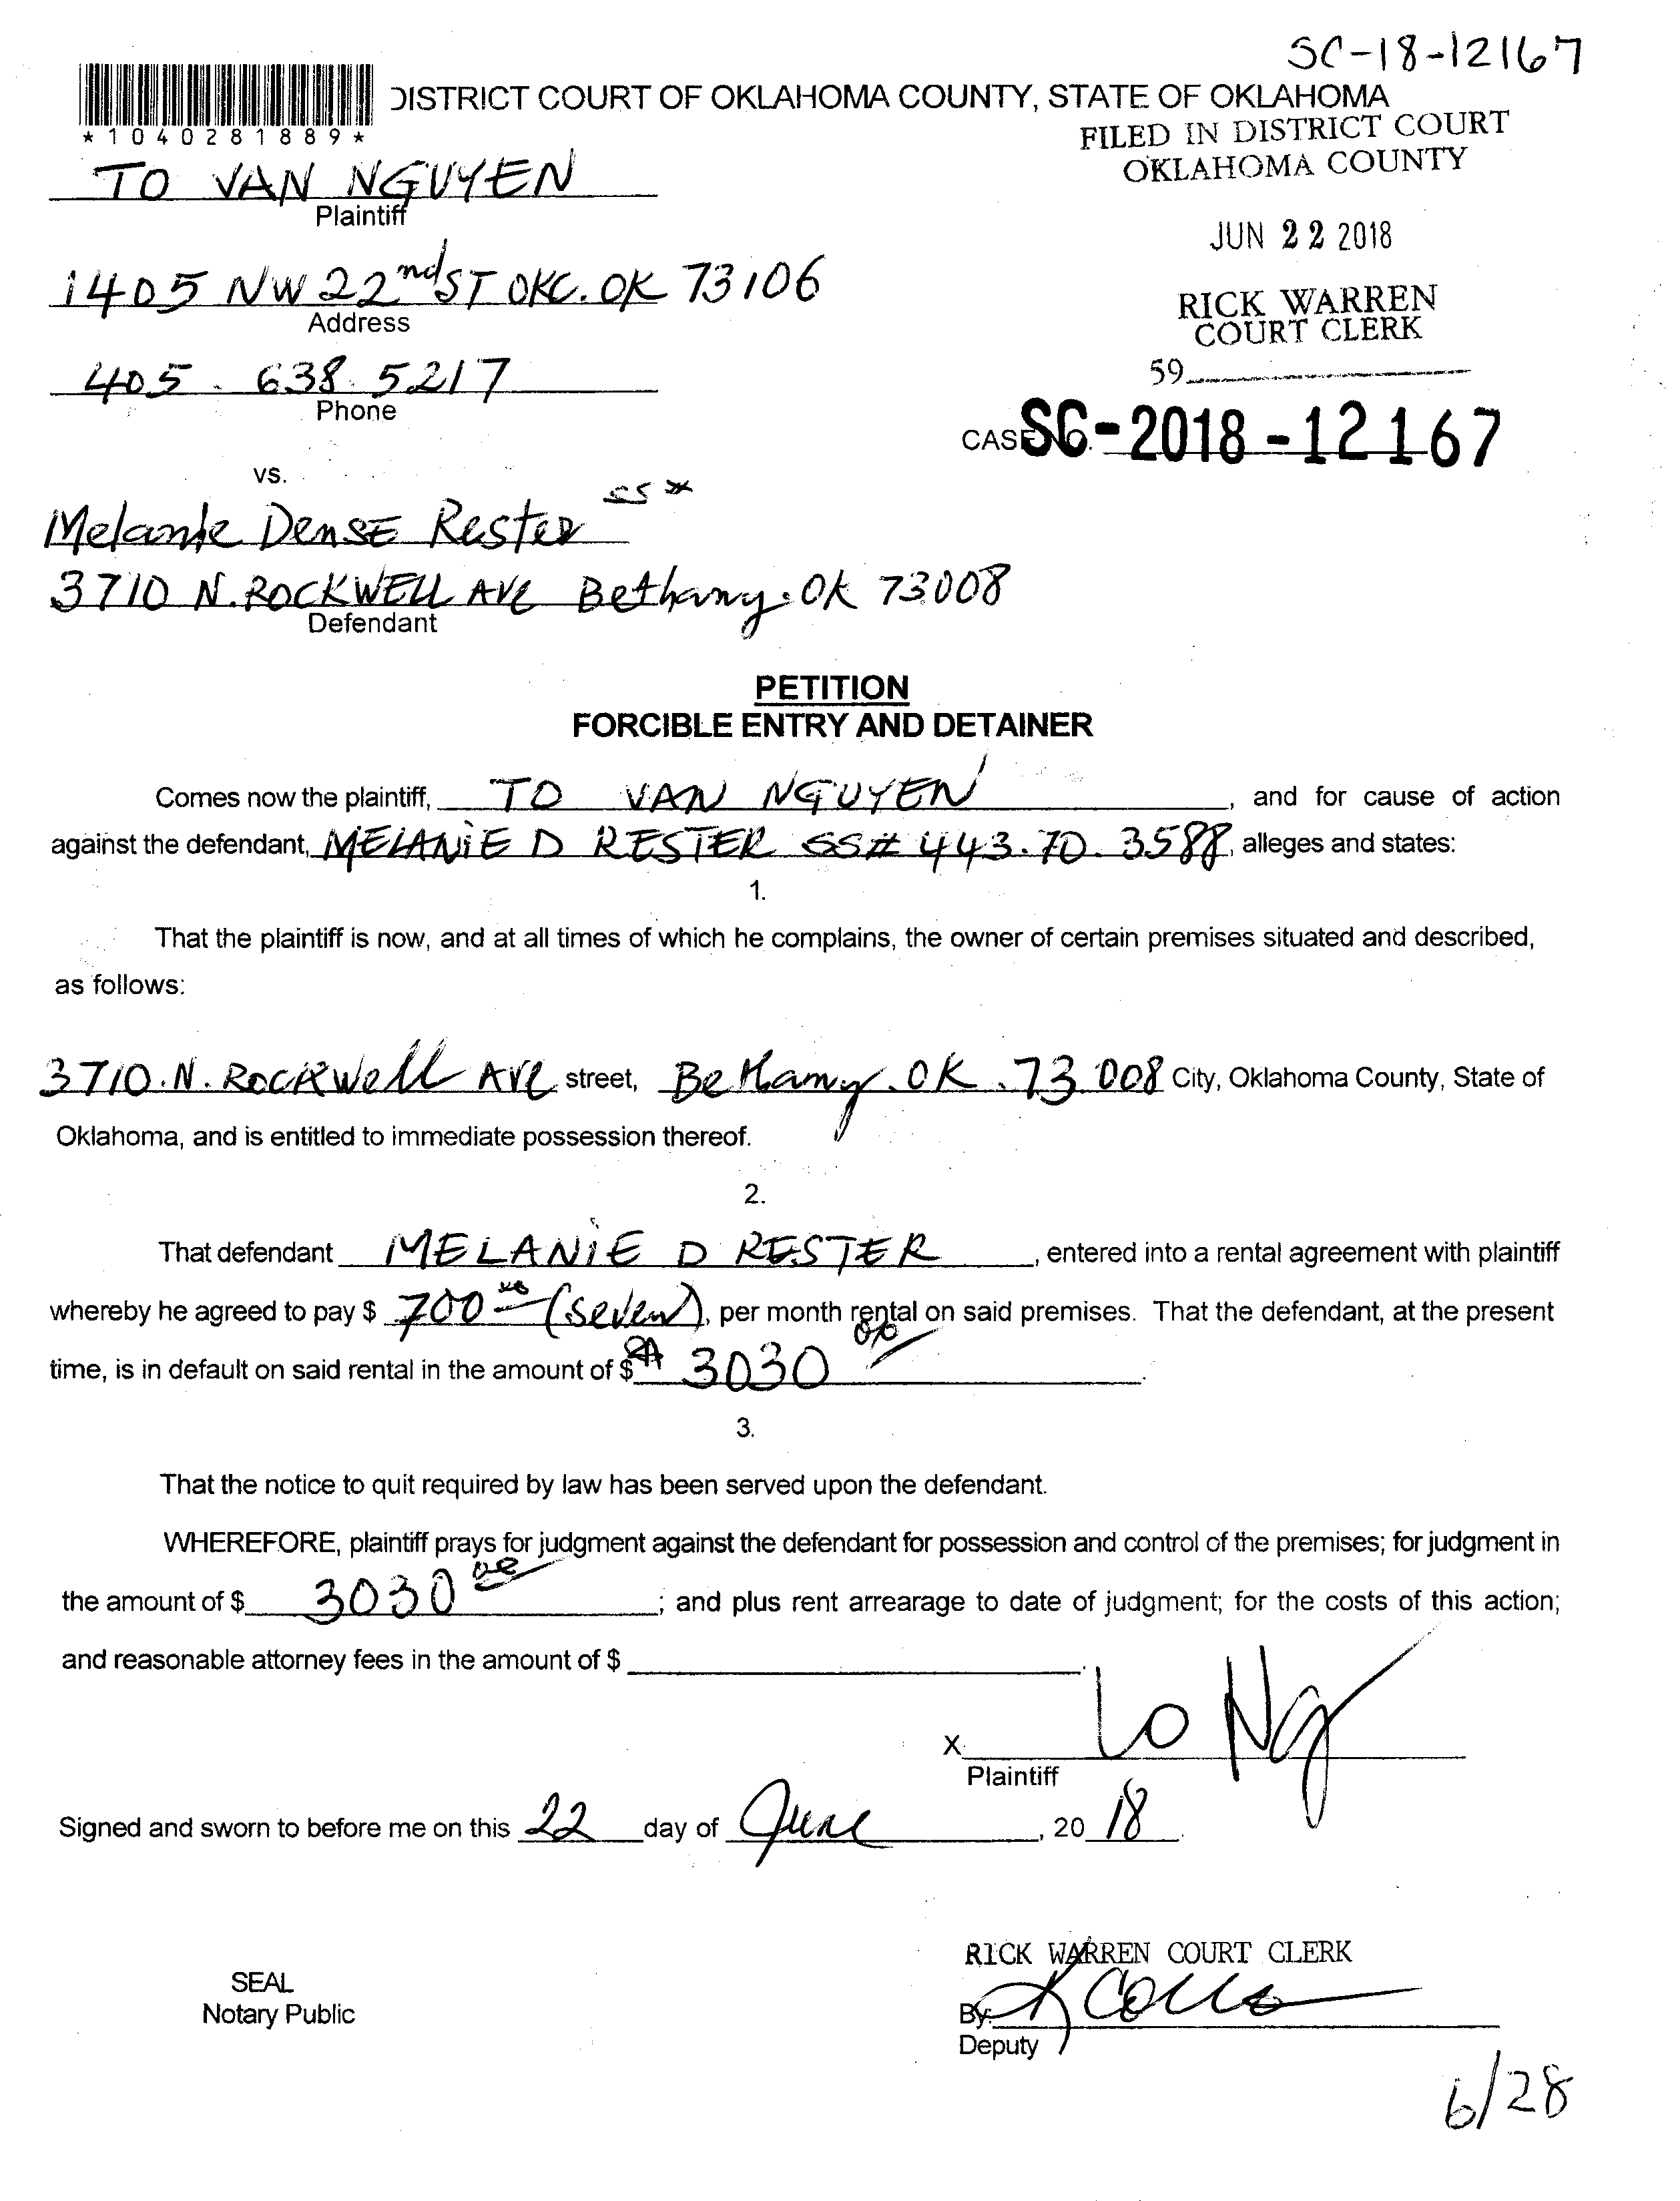 SC-18-12167
DISTRICT COURT OF OKLAHOMA COUNTY, STATE OF OKLAHOMA
*1040281889*
FILED IN DISTRICT COURT
OKLAHOMA COUNTY
TO VAN NGUYEN
Plaintiff
JUN 22 2018
1405 NW 22nd ST OKC. OK 73106
Address
RICK WARREN
COURT CLERK
405. 638. 5217
Phone
59
CASE NO. SC-2018-12167
vs.
Melanie Dense Rester SS #
3710 N. ROCKWELL AVE Bethany. OK 73008
Defendant
PETITION
FORCIBLE ENTRY AND DETAINER
Comes now the plaintiff, TO VAN NGUYEN, and for cause of action
against the defendant, MELANIE D RESTER SS# 443.70.3588, alleges and states:
1.
That the plaintiff is now, and at all times of which he complains, the owner of certain premises situated and described,
as follows:
3710.N. Rockwell AVE street, Bethany. OK. 73 008 City, Oklahoma County, State of
Oklahoma, and is entitled to immediate possession thereof.
2.
That defendant MELANIE D RESTER, entered into a rental agreement with plaintiff
whereby he agreed to pay $ 700 00 (seven), per month rental on said premises. That the defendant, at the present
time, is in default on said rental in the amount of $ 3030 00.
3.
That the notice to quit required by law has been served upon the defendant.
WHEREFORE, plaintiff prays for judgment against the defendant for possession and control of the premises; for judgment in
the amount of $ 3030 00; and plus rent arrearage to date of judgment; for the costs of this action;
and reasonable attorney fees in the amount of $
X
Plaintiff
Signed and sworn to before me on this 22 day of June, 20 18.
RICK WARREN COURT CLERK
SEAL
Notary Public
By:
Deputy
6/28